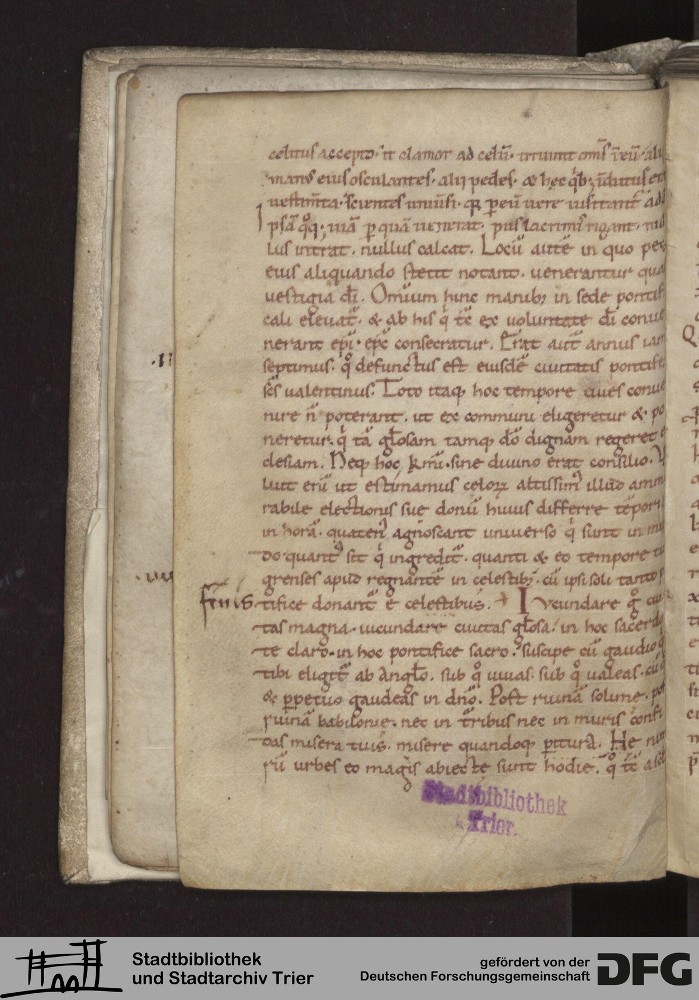 celitus accepto· it clamor ad celū· irruunt om̄s ī eū· alii
manꝰ eius osculantes· alii pedes· & hec qͥb; īdutus erat
uestim̄ta· scientes uniūsi· qꝛ ꝑ eū uere uisitant̄ a dō
Ipsā qͦq; uiā ꝑ quā uenerat· piis lacrimis rigant· nul
lus intrat· nullus calcat. Locū autē in quo pes
eius aliquando stetit notant· uenerantur quasi
uestigia dī. Omnium hinc manibꝰ in sede pontifi
cali eleuat̄· & ab his qͥ t̄c ex uoluntate dī conue
nerant ep̄i· ep̄c consecratur. Erat aūt annus iam
septimus· qͦ defunctus est eiusdē ciuitatis pontifex
sc̄s ualentinus. Toto itaq; hoc tempore ciues conue
nire n̄ poterant· ut ex communi eligeretur & po
neretur· qͥ tā gl̄osam tamq; dō dignam regeret ec
clesiam. Neq; hoc kmī· sine diuino erat consilio. Vo
luit enī ut estimamus celoꝝ altissimꝰ illud ammi
rabile electionis sue donū huius differre tēpori
in horā· quatenꝰ agnoscant uniuersi qͥ sunt in mū
do· quantꝰ sit qͥ ingredit̄· quanti & eo tempore tū
grenses apud regnantē in celestibꝰ· cū ipsi soli tanto pō
tifice donant̄ e celestibus. Iocundare gͦ ciui
finis
tas magna· iocundare ciuitas gl̄osa· in hoc sacerdo
te claro· in hoc pontifice sacro· suscipe cū gaudio qͥ
tibi eligit̄ ab anglo· sub qͦ uiuas· sub qͦ ualeas· cū qͦ
& ꝑpetuo gaudeas in dn̄o. Post ruinā solime· post
ruinā babilonie· nec in t̄ribus nec in muris confi
das misera tuis· misere quandoq; ꝑitura. He nim
rū urbes eo magis abiecte sunt hodie·
Stadtbibliothek
Trier.
Stadtbibliothek
und Stadtarchiv Trier
gefördert von der
Deutschen Forschungsgemeinschaft
DFG